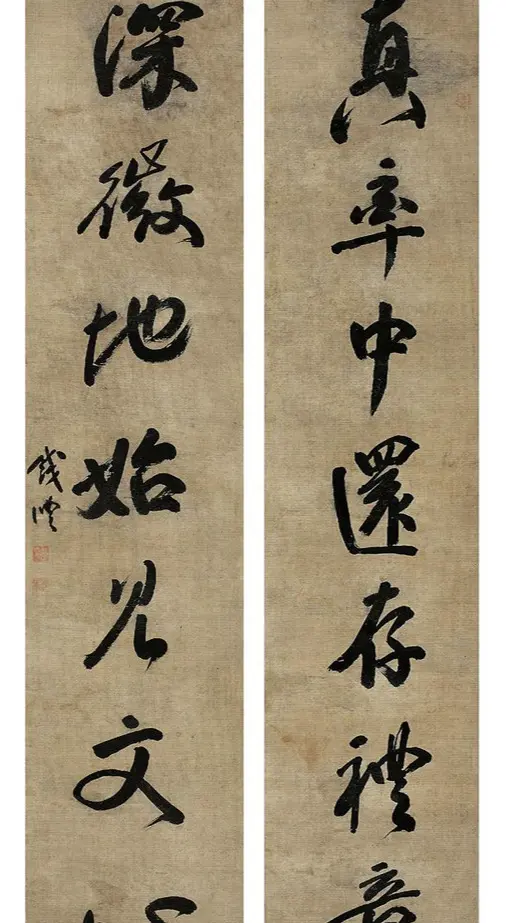 真率中還存禮
深微地始見文
錢灃